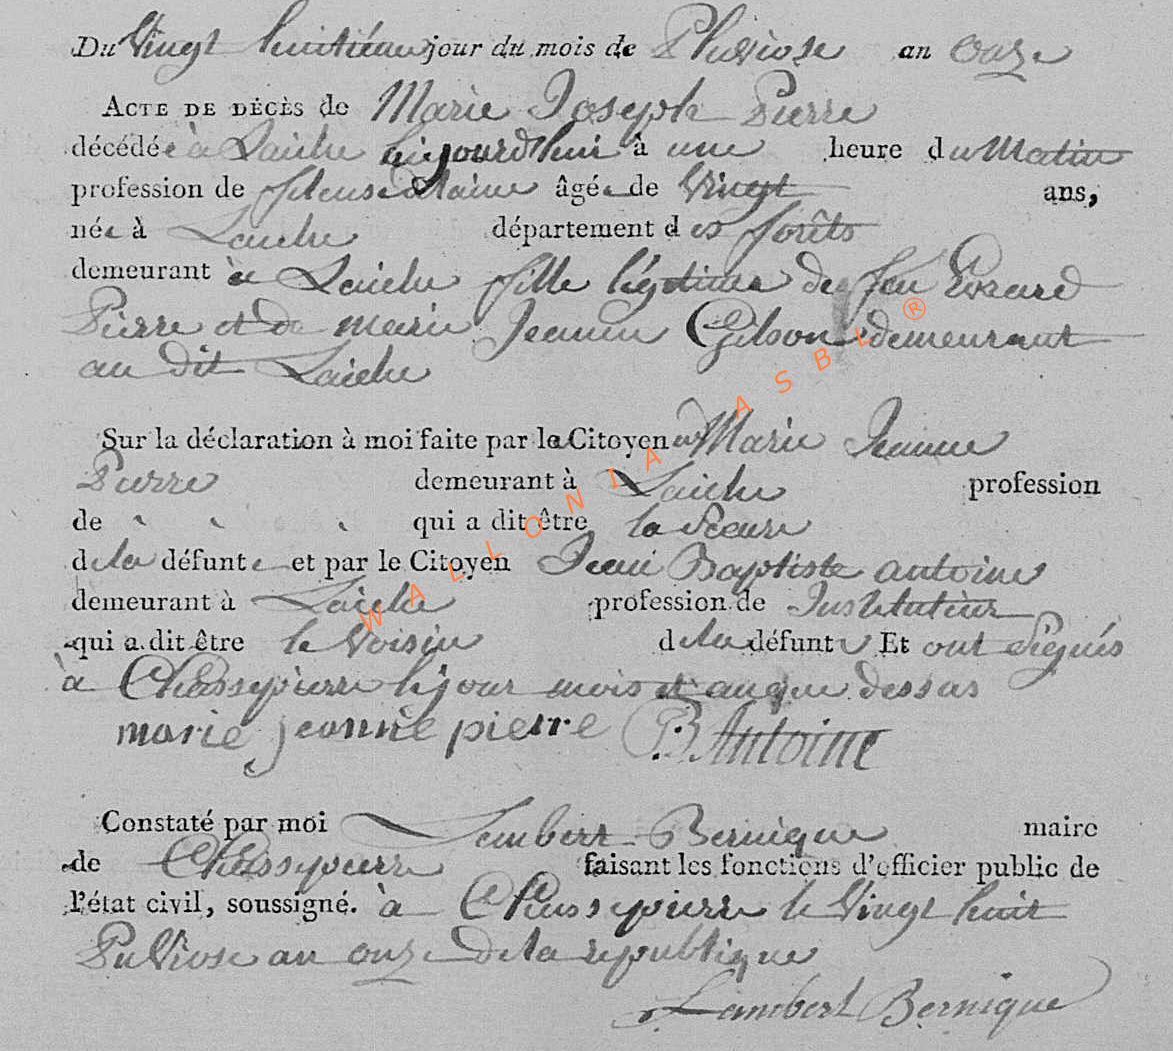 Du Vingt huitième jour du mois de Pluviose an onze
ACTE DE DÉCÈS de Marie Joseph Pierre
décédée à Laiche aujourd'hui à une heure du Matin
profession de fileuse de laine âgée de Vingt ans,
née à Laiche département des forêts
demeurant à Laiche fille légitime de feu Evrard
Pierre et de marie Jeanne Gilson demeurant
au dit Laiche
Sur la déclaration à moi faite par la Citoyenne Marie Jeanne
Pierre demeurant à Laiche profession
de qui a dit être la Sœure
de la défunte et par le Citoyen Jean Baptiste antoine
demeurant à Laiche profession de Instituteur
qui a dit être le Voisin de la défunte Et ont Signés
à Chassepierre le jour mois et an que dessus
marie jeanne pierre B. Antoine
Constaté par moi Lambert Bernique maire
de Chassepierre faisant les fonctions d'officier public de
l'état civil, soussigné. à Chassepierre le Vingt huit
PluViose an onze de la republique
Lambert Bernique
WALLONIA ASBL ®